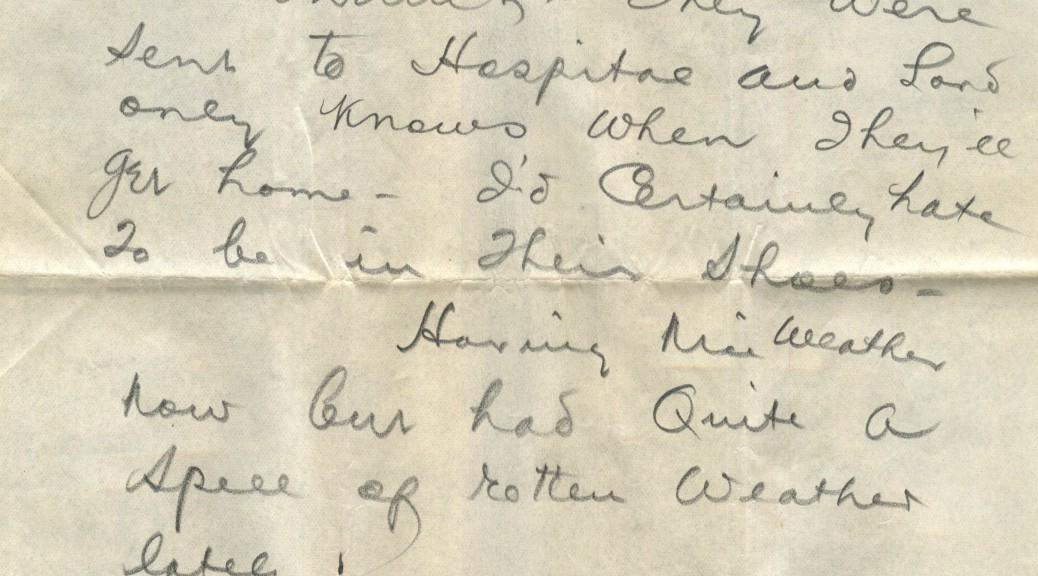 They were
Sent to Hospital and Lord
only Knows When They'll
Get home - I'd Certainly hate
To be in Their Shoes -
Having Nice Weather
Now but had Quite a
Spell of rotten Weather
lately